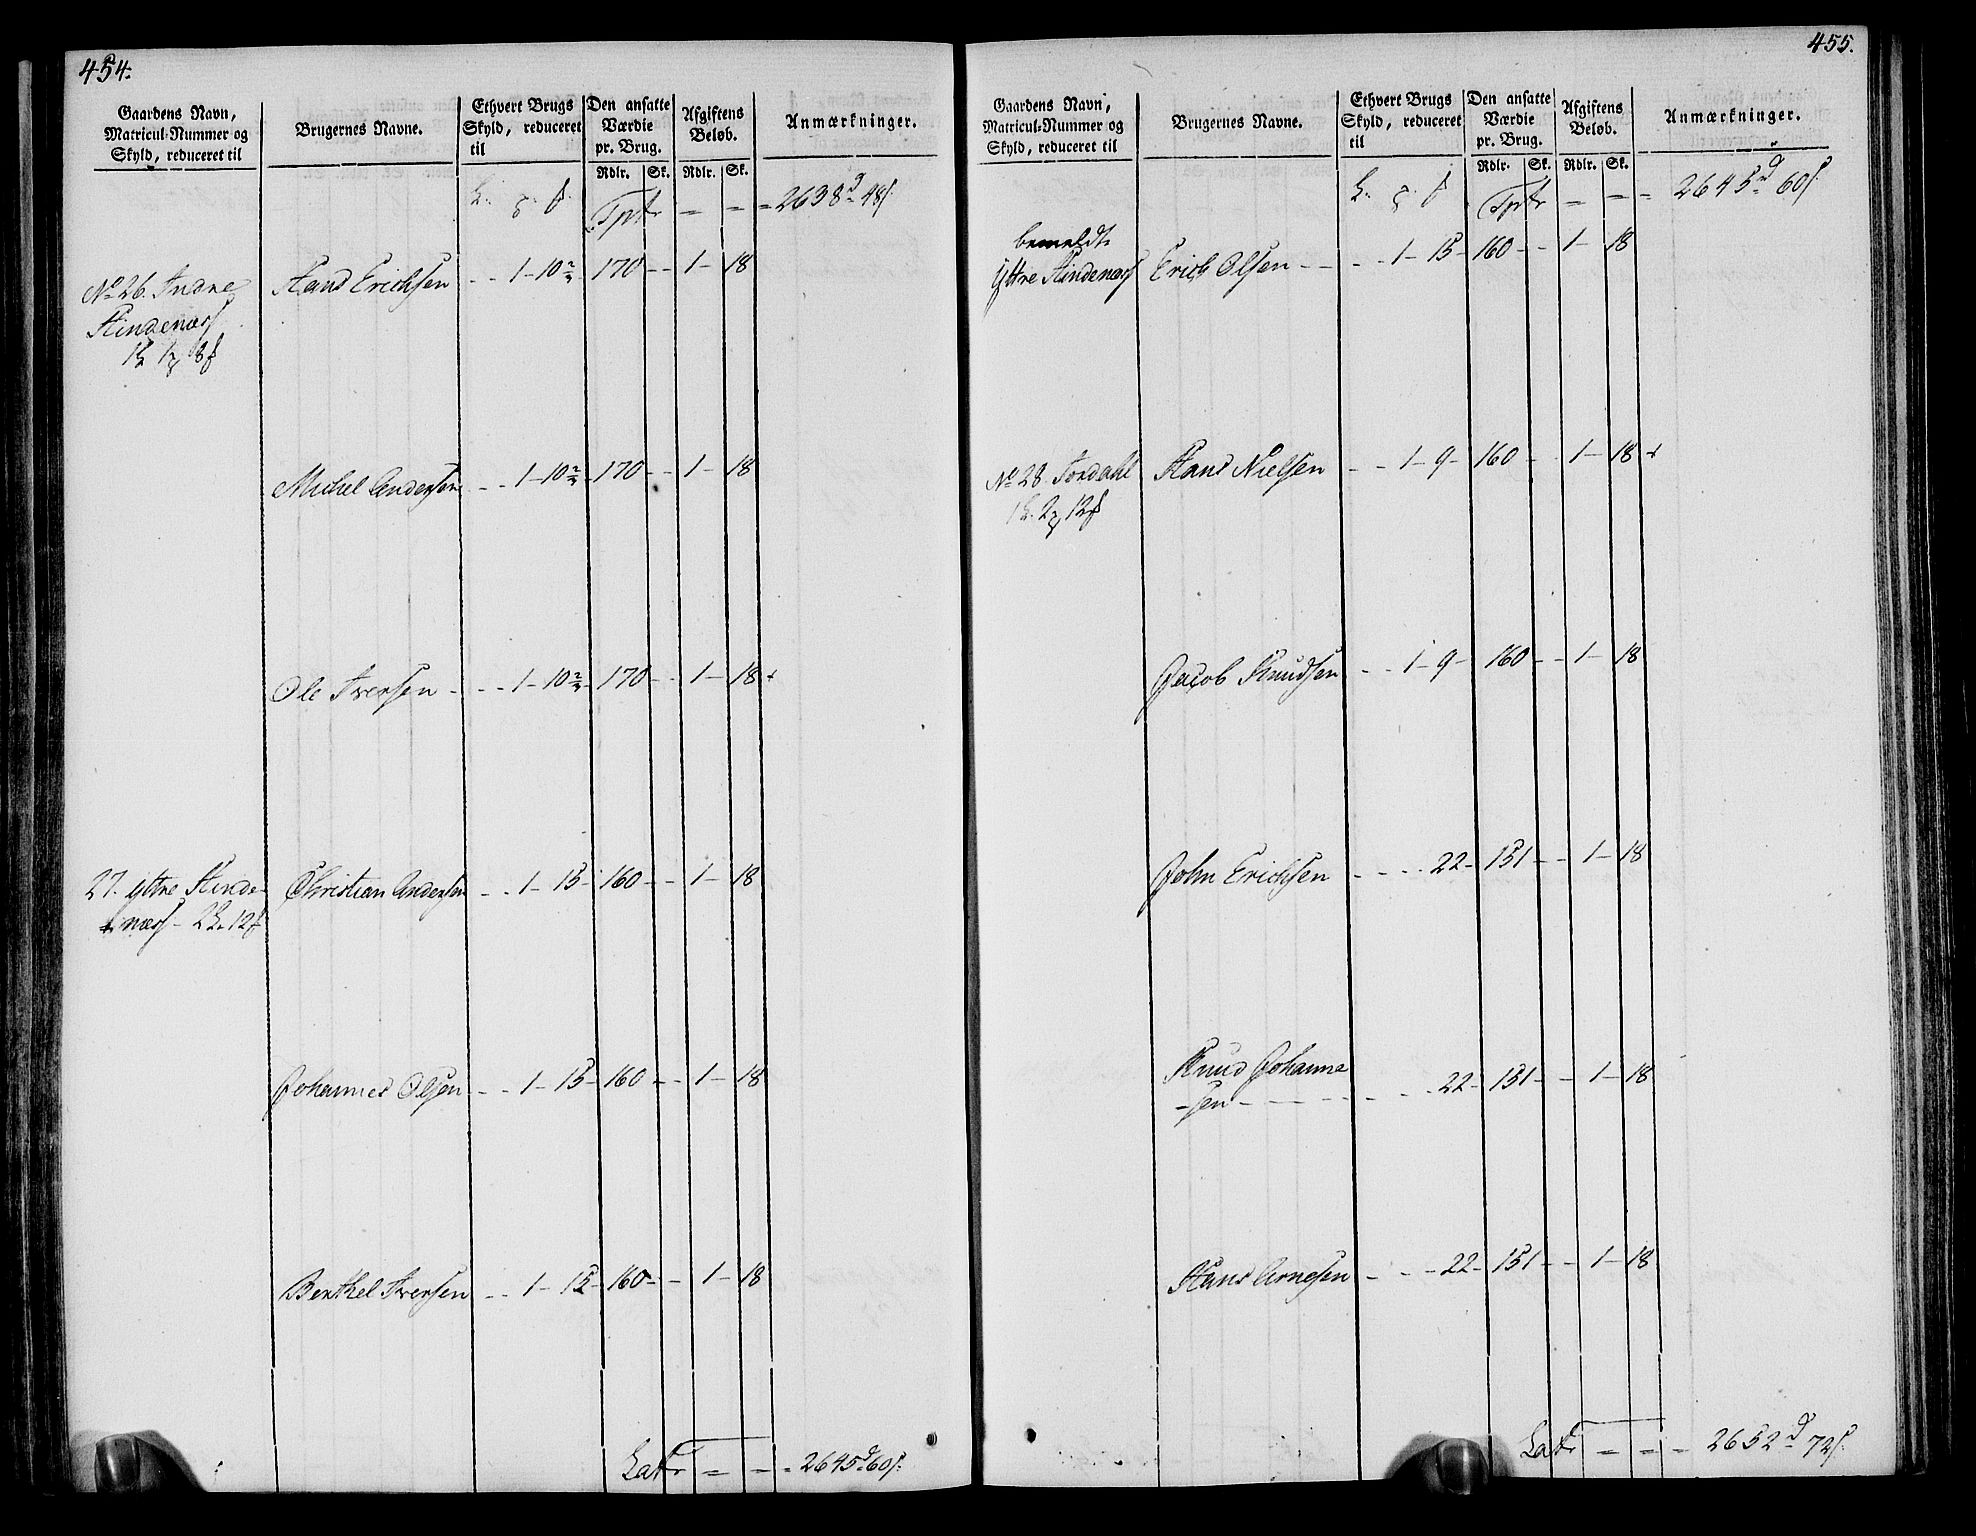 454.
Gaardens Navn, Matricul-Nummer og Skyld, reduceret til
Brugernes Navne.
Ethvert Brugs Skyld, reduceret til
Den ansatte Værdie pr. Brug.
Afgiftens Beløb.
Anmærkninger.
Rdlr. Sk. Rdlr. Sk.
Tptr = = = 2638 d 48 s.
No 26. Indre Hans Erichsen - - 1 - 10 2/3 170 - - 1 - 18
Hindenæss
1 1 8
Michel Andersen - - 1 - 10 2/3 170 - - 1 - 18
Ole Iversen - - - 1 - 10 2/3 170 - - 1 - 18 +
27. Yttre Hinde- Christian Andersen - - 1 - 15 - 160 - - 1 - 18
næss - 2 12
Johannes Olsen - - 1 - 15 - 160 - - 1 - 18
Berthel Iversen - - 1 - 15 - 160 - - 1 - 18
Latr = = = 2645 d 60 s.
455.
Gaardens Navn, Matricul-Nummer og Skyld, reduceret til
Brugernes Navne.
Ethvert Brugs Skyld, reduceret til
Den ansatte Værdie pr. Brug.
Afgiftens Beløb.
Anmærkninger.
Rdlr. Sk. Rdlr. Sk.
Tptr = = = 2645 d 60 s.
bemeldte
Yttre Hindenæss Erich Olsen - - - - 1 - 15 - 160 - - 1 - 18
No 28. Fordahl Hans Nielsen - - 1 - 9 - 160 - - 1 - 18 +
1 2 12
Jacob Knudsen - - 1 - 9 - 160 - - 1 - 18
John Erichsen - - - - 22 - 151 - - 1 - 18
Knud Johanne
-sen - - - - - - - 22 - 151 - - 1 - 18
Hans Arnesen - - - 22 - 151 - - 1 - 18
Latr = = = 2652 d 72 s.